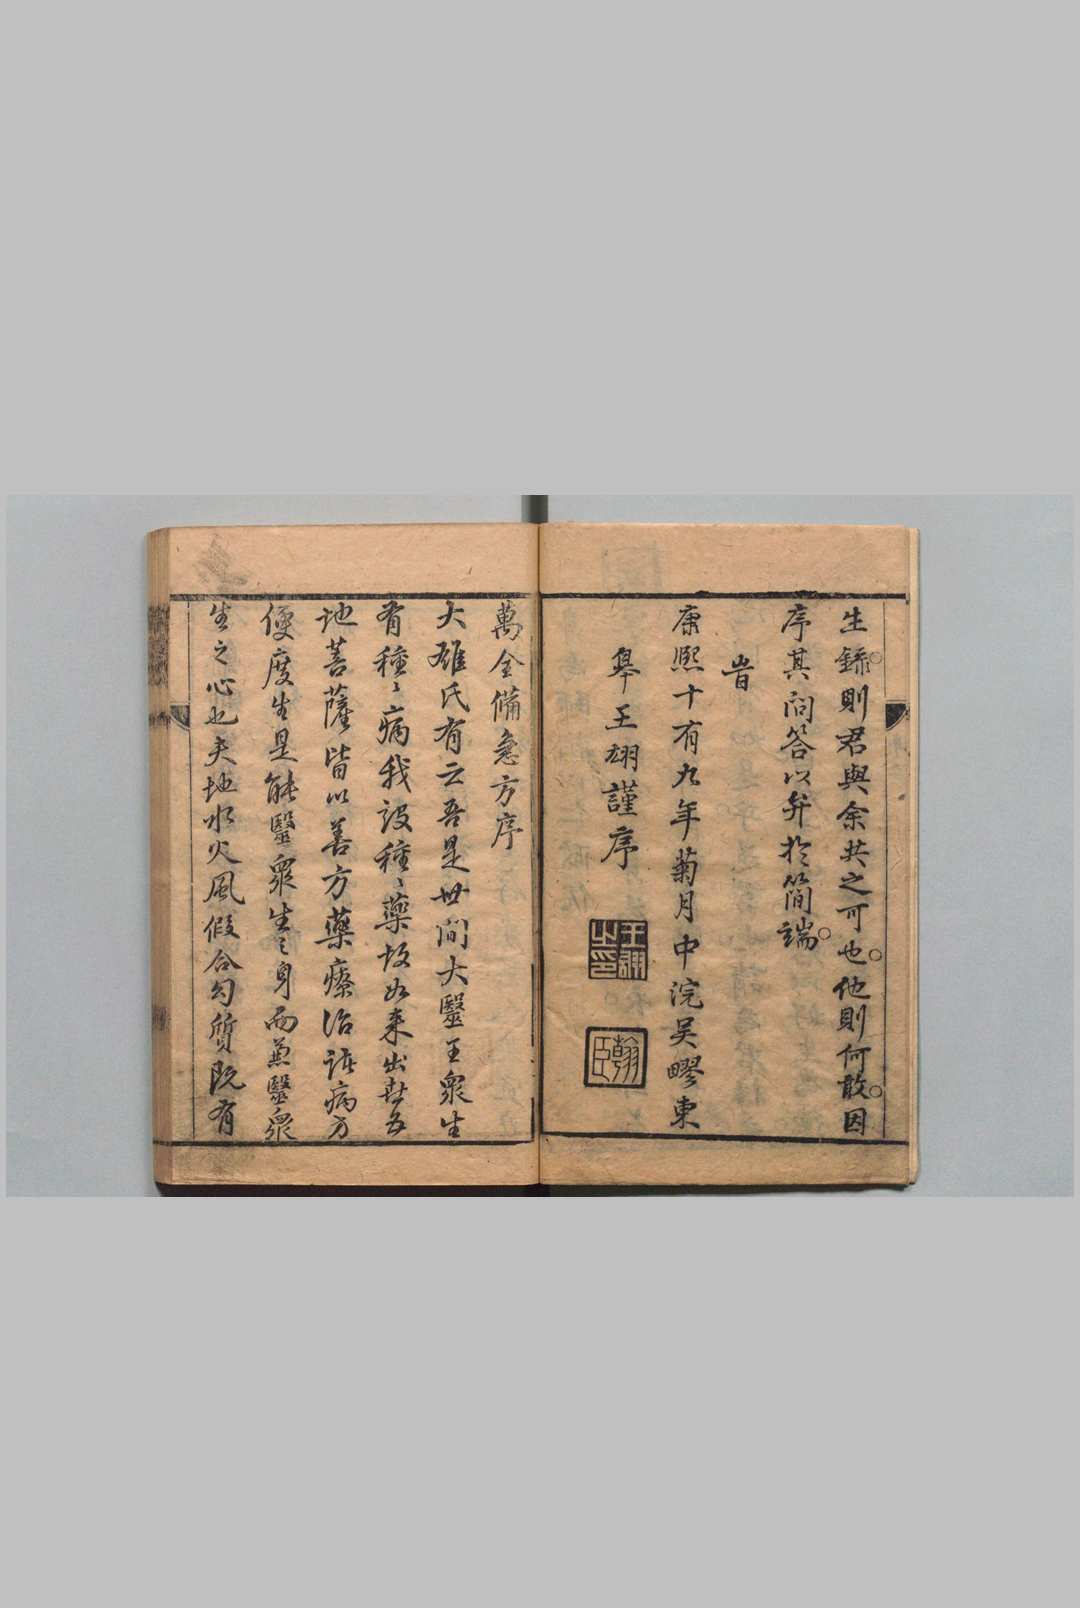 生鉌則君與余共之可也他則何敢因
序其問答以弁於簡端
旹
康熈十有九年菊月中浣吴郡東
皋王翃謹序
王翃之印
翰臣
萬全備急方序
大雄氏有云吾是世間大毉王衆生
有種〻病我設種〻藥故如来出世五
地菩薩皆以善方藥療治諸病方
便度生是能毉衆生〻身而兼毉衆
生之心也夫地水火風假合勾質既有